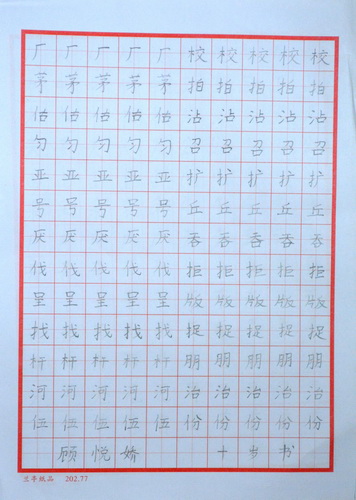 厂厂厂厂厂校校校校校
茅茅茅茅茅拍拍拍拍拍
估估估估估沾沾沾沾沾
匀匀匀匀匀召召召召召
亚亚亚亚亚扩扩扩扩扩
号号号号号丘丘丘丘丘
厌厌厌厌厌吞吞吞吞吞
伐伐伐伐伐拒拒拒拒拒
呈呈呈呈呈版版版版版
找找找找找捉捉捉捉捉
杆杆杆杆杆朋朋朋朋朋
河河河河河治治治治治
伍伍伍伍伍份份份份份
顾悦娇 十 书 书
三年纸品 202.77